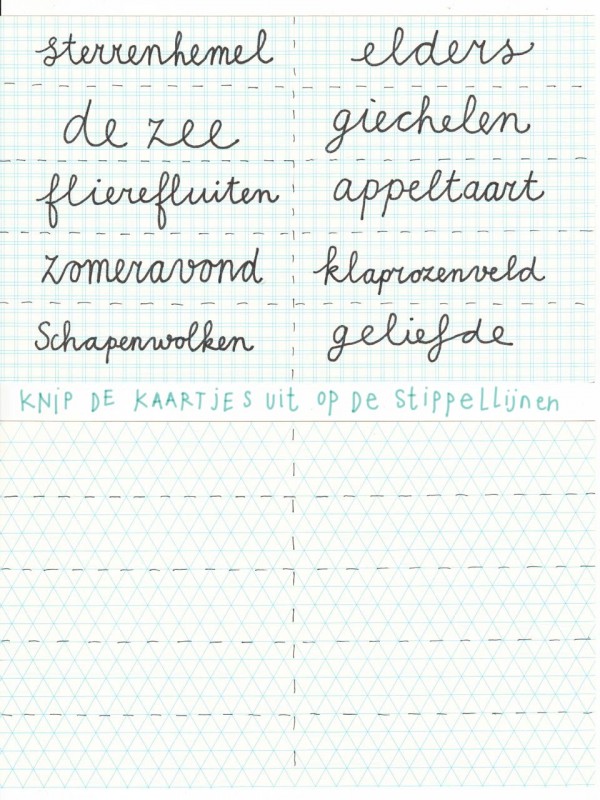 sterrenhemel elders
de zee giechelen
flierefluiten appeltaart
zomeravond klaprozenveld
Schapenwolken geliefde
KNIP DE KAARTJES UIT OP DE STIPPELLIJNEN